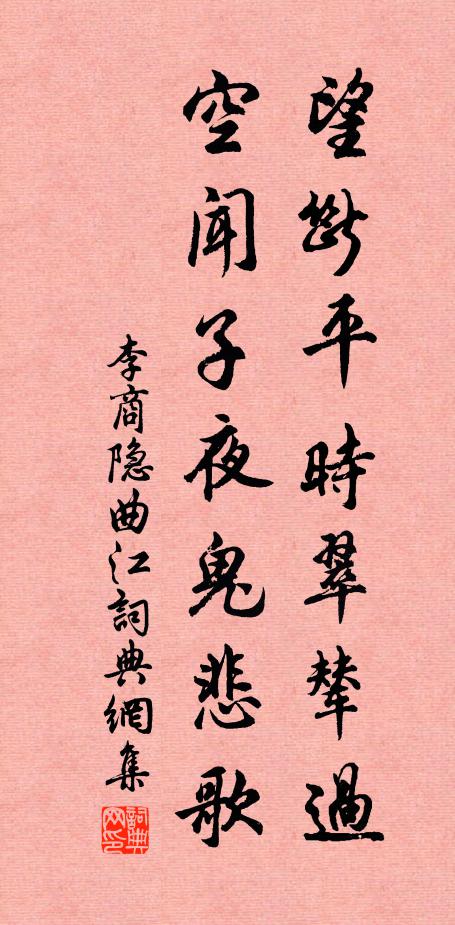 望斷平時翠輦過
空聞子夜鬼悲歌
李商隐曲江詞典網集
詞典网印